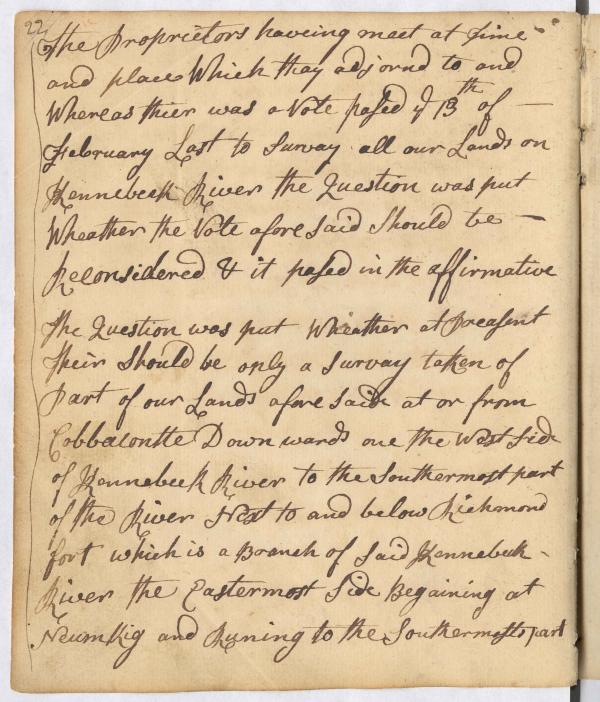 22
The Proprietors haveing meet at time
and place Which thay adjornd to and
Whereas thier was a Vote pased ye 13th of —
February Last to Survay all our Lands on
Kennebeck River the Question was put
Wheather the Vote afore said Should be —
Reconsidered & it pased in the affirmative
The Question was put Wheather at Preasent
Their Should be only a Survay taken of
Part of our Lands afore saide at or from
Cobbacontte Down wards one the West Side
of Kennebeck River to the Southermost part
of the River Next to and below Richmond
fort which is a Branch of Said Kennebeck -
River the Eastermost Side Begaining at
Neumkig and Runing to the Southermosts part